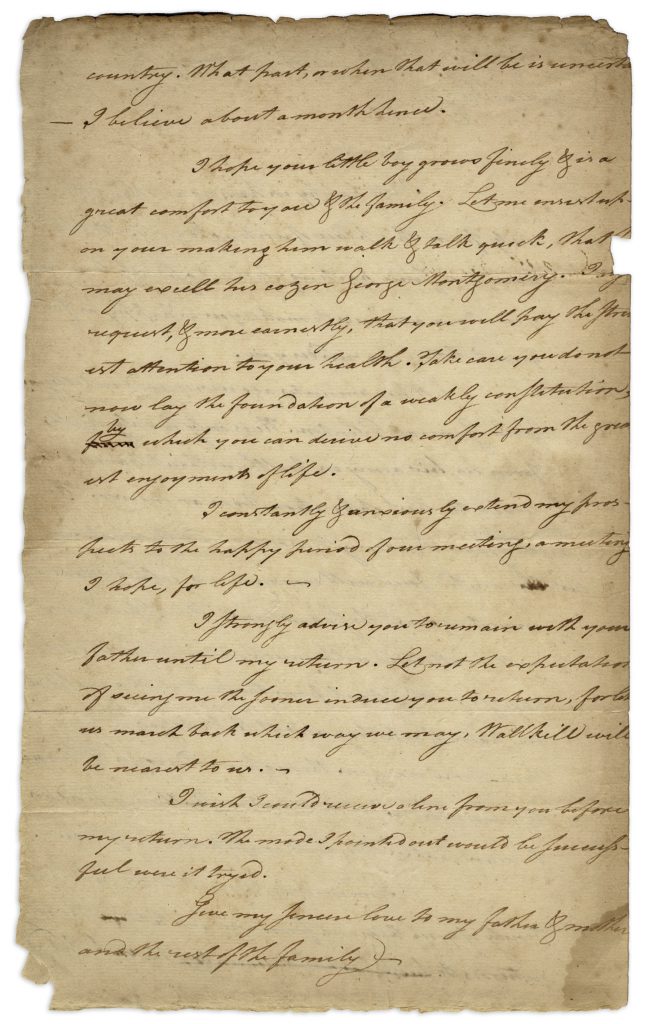 country. What part, or when that will be is uncerta
— I believe about a month hence.
I hope your little boy grows finely & is a
great comfort to you & the family. Let me insist up-
on your making him walk & talk quick, that
may excell his cozen George Montgomery. I
request, & more earnestly, that you will pay the stric
est attention to your health. Take care you do not
now lay the foundation of a weakly constitution,
by which you can derive no comfort from the grea
est enjoyments of life.
I constantly & anxiously extend my pros-
pects to the happy period of our meeting, a meeting
I hope, for life. —
I strongly advise you to remain with your
father until my return. Let not the expectation
of seeing me the sooner induce you to return, for let
us march back which way we may, Wallkill will
be nearest to us. —
I wish I could receive a line from you before
my return. The mode I pointed out would be success-
ful were it tryed.
Give my sincere love to my father & mother
and the rest of the family)